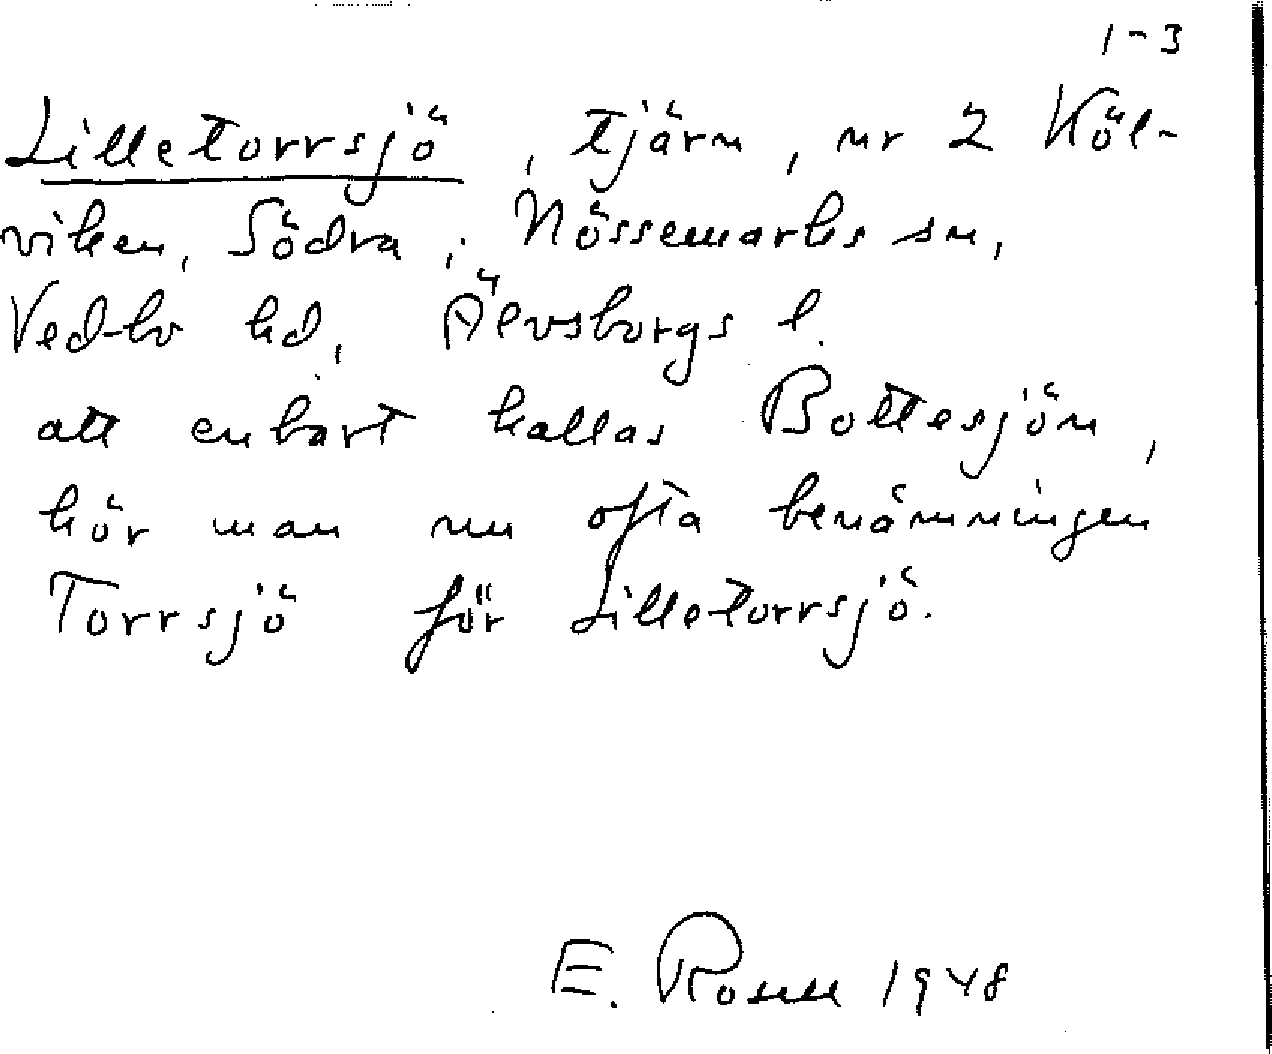 1-3
Lilletorrsjö, tjärn, nr 2 Köl-
viken, Södra, i Nössemarks sn,
Vedbo hd, Älvsborgs l.
att enbart kallas Bottesjön,
hör man nu ofta benämningen
Torrsjö för Lilletorrsjö.
E. Rosell 1948